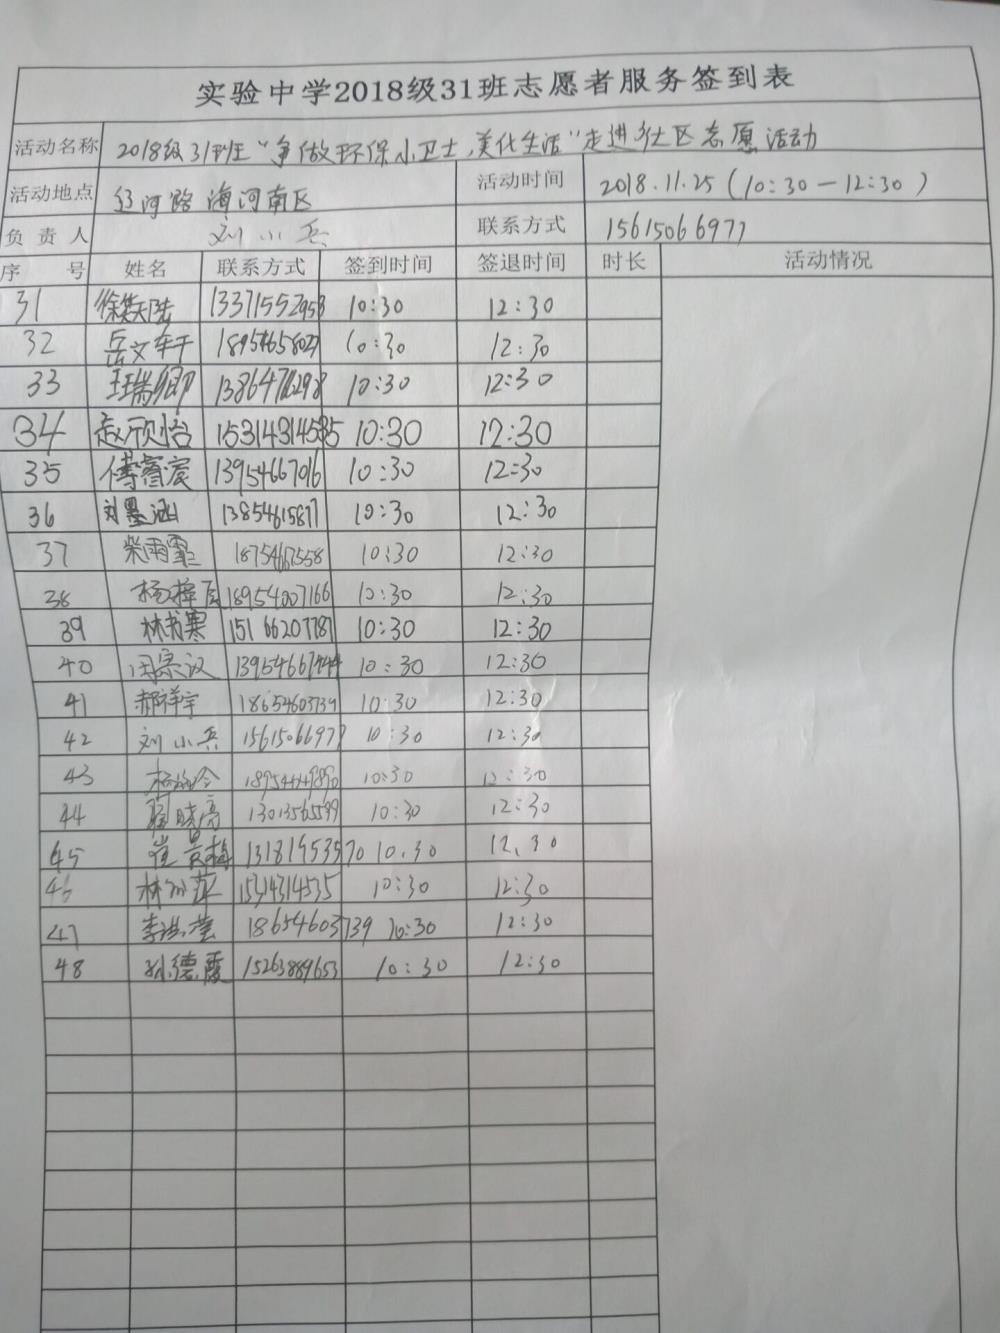 实验中学2018级31班志愿者服务签到表
活动名称 2018级31班"争做环保小卫士,美化生活"走进社区志愿活动
活动地点 红河路海河南区 活动时间 2018.11.25(10:30—12:30)
负责人 刘小兵 联系方式 15615066977
序号 姓名 联系方式 签到时间 签退时间 时长 活动情况
31 13371552958 10:30 12:30
32 10:30 12:30
33 王瑞卿 10:30 12:30
34 赵欣怡 15314314535 10:30 12:30
35 傅睿宸 13954667016 10:30 12:30
36 刘墨涵 13854615877 10:30 12:30
37 10:30 12:30
38 18954007166 10:30 12:30
39 林书寒 15166207787 10:30 12:30
40 13954667444 10:30 12:30
41 郝祥宇 18654603739 10:30 12:30
42 刘小兵 15615066977 10:30 12:30
43 10:30 12:30
44 13013565599 10:30 12:30
45 崔景梅 13181953570 10.30 12.30
46 15314314535 10:30 12:30
47 18654603739 10:30 12:30
48 孙德霞 15263889653 10:30 12:30